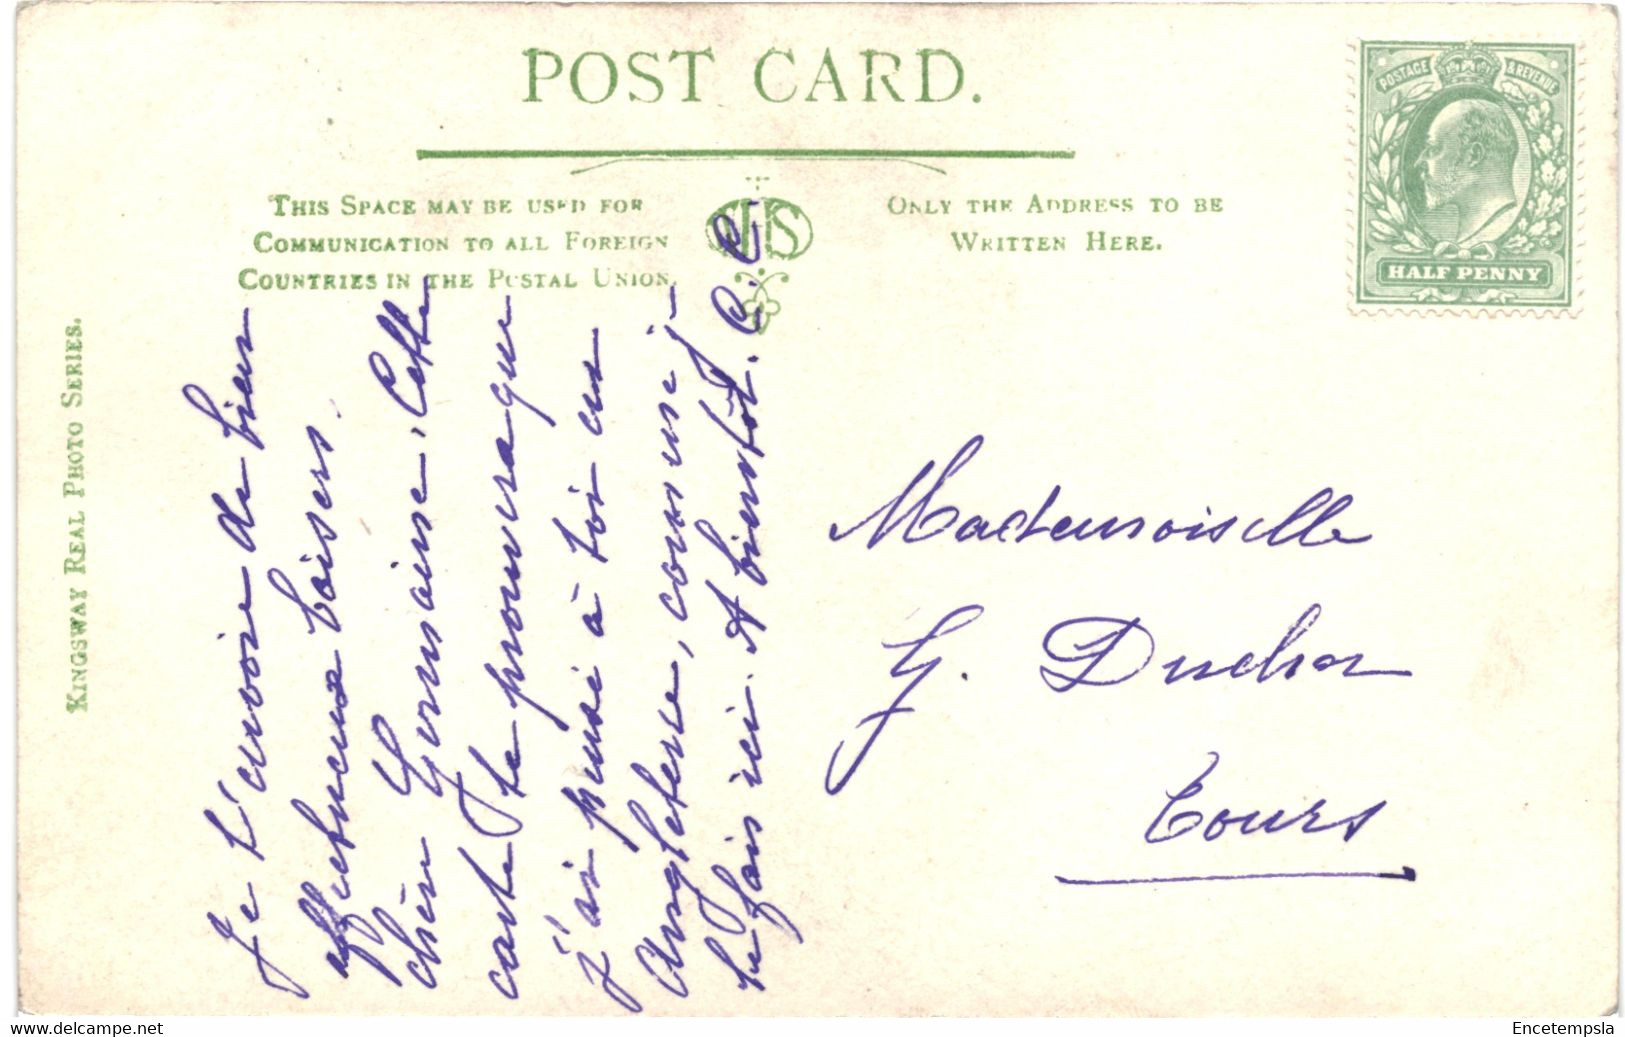 POST CARD.
THIS SPACE MAY BE USED FOR
COMMUNICATION TO ALL FOREIGN
COUNTRIES IN THE POSTAL UNION.
ONLY THE ADDRESS TO BE
WRITTEN HERE.
POSTAGE & REVENUE
HALF PENNY
KINGSWAY REAL PHOTO SERIES.
Je t'envoie de bien
affectueux baisers
chère Germaine. Cette
carte te prouvera que
j'ai pensé à toi en
Angleterre, comme je
le fais ici. A bientôt. C. C.
Mademoiselle
G.
Tours
Encetempsla
https://www.delcampe.net